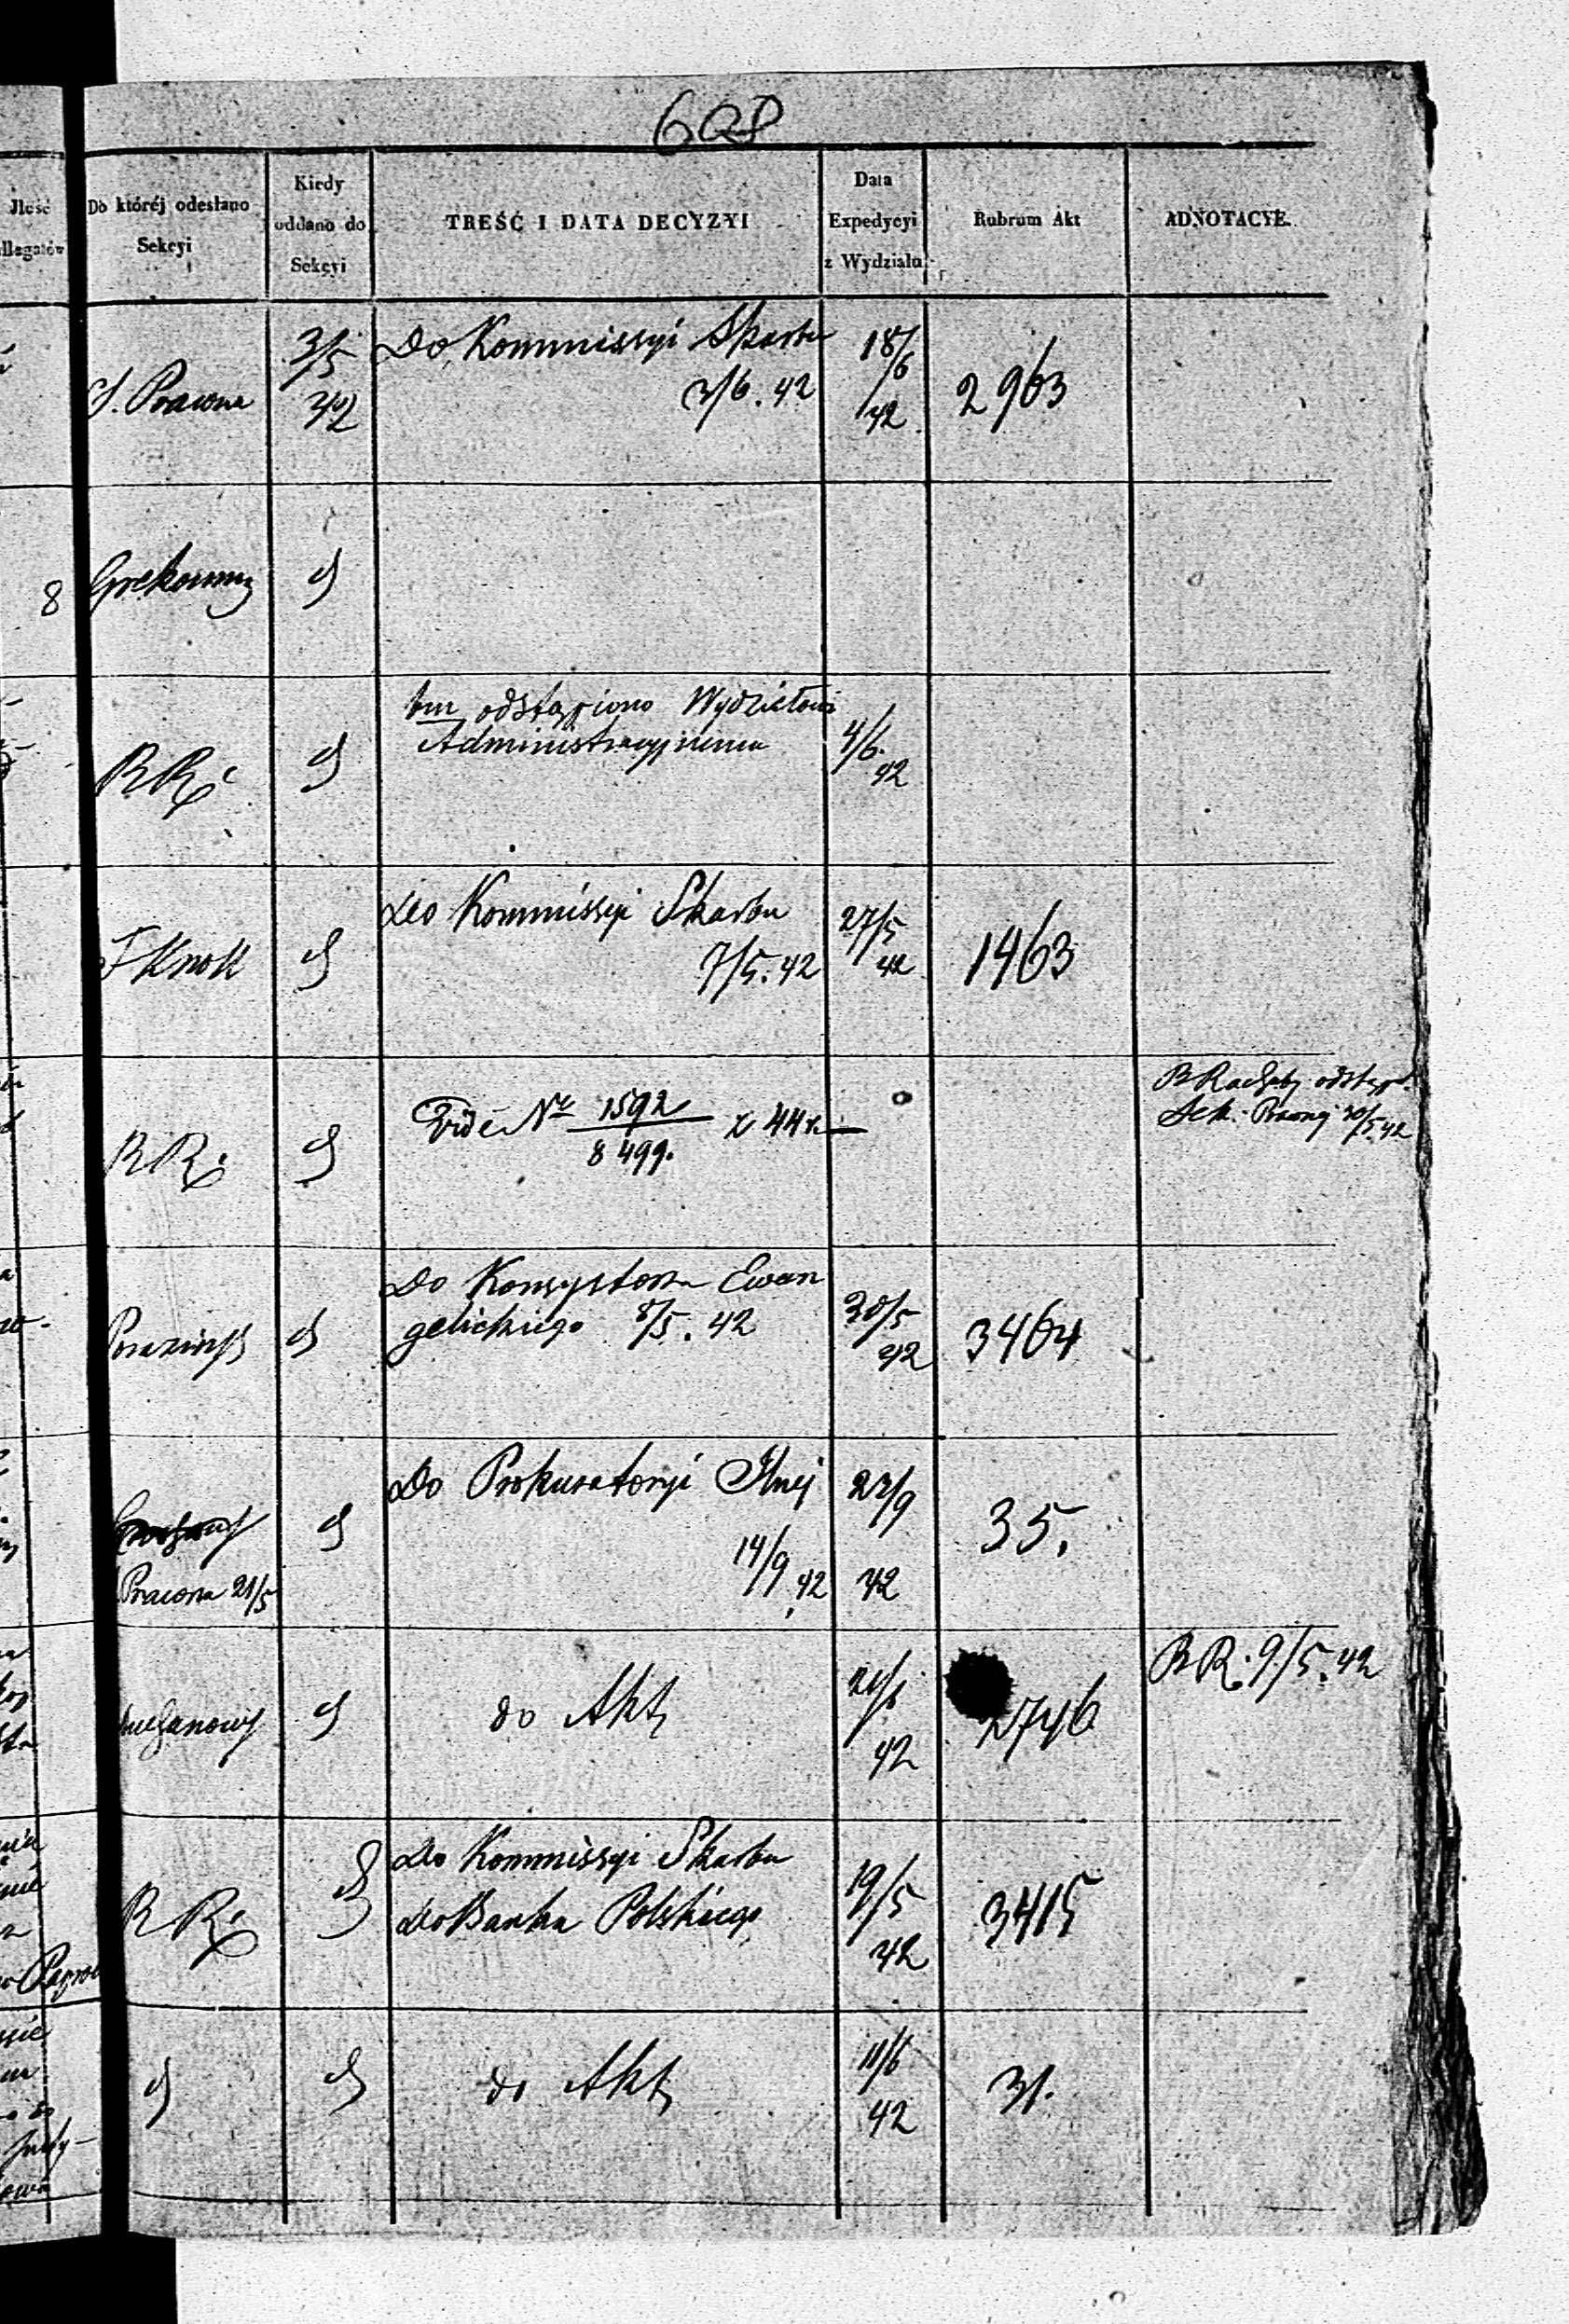 608
Jlość
llegatów
Do któréj odesłano
Sekcyi
Kiedy
oddano do
Sekcyi
TREŚĆ I DATA DECYZYI
Data
Expedycyi
z Wydziału
Rubrum Akt
ADNOTACYE.
S. Prawna
3/5
42
Do Kommissyi Skarbu
3/6. 42
18/6
42
2963
8
bm odstąpiono Wydziałowi
Administracyjnemu
4/6.
42
RR.
do Kommissyi Skarbu
7/5. 42
27/5
42
F Knoll
1463
RR.
Vide Nr 1592
8499.
z 44 r.
odstąp.
Sek. Prawnej 30/5.42
Do Konsystorza Ewan
gelickiego 8/5. 42
30/5
42
3464
Do Prokuratoryi
14/9 42
23/9
42
35.
Prawna 21/5
do Akt
42
2746
RR. 9/5. 42
RR.
Do Kommissyi Skarbu
do Banku Polskiego
19/5
42
3415
do Akt
11/6
42
31.